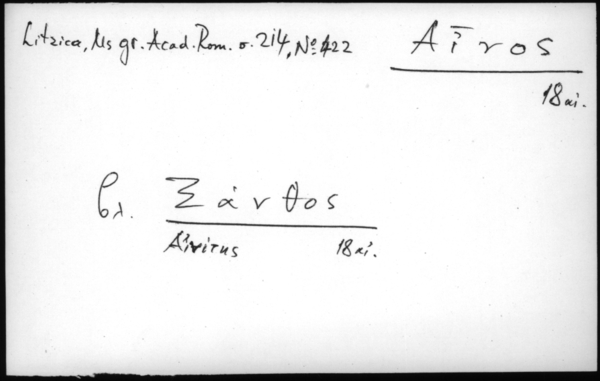 Litzica, Ms gr. Acad. Rom. σ. 214, Nο 422
Αἶνος
18 αἰ.
βλ. Ξάνθος
Αἰνίτης 18 αἰ.